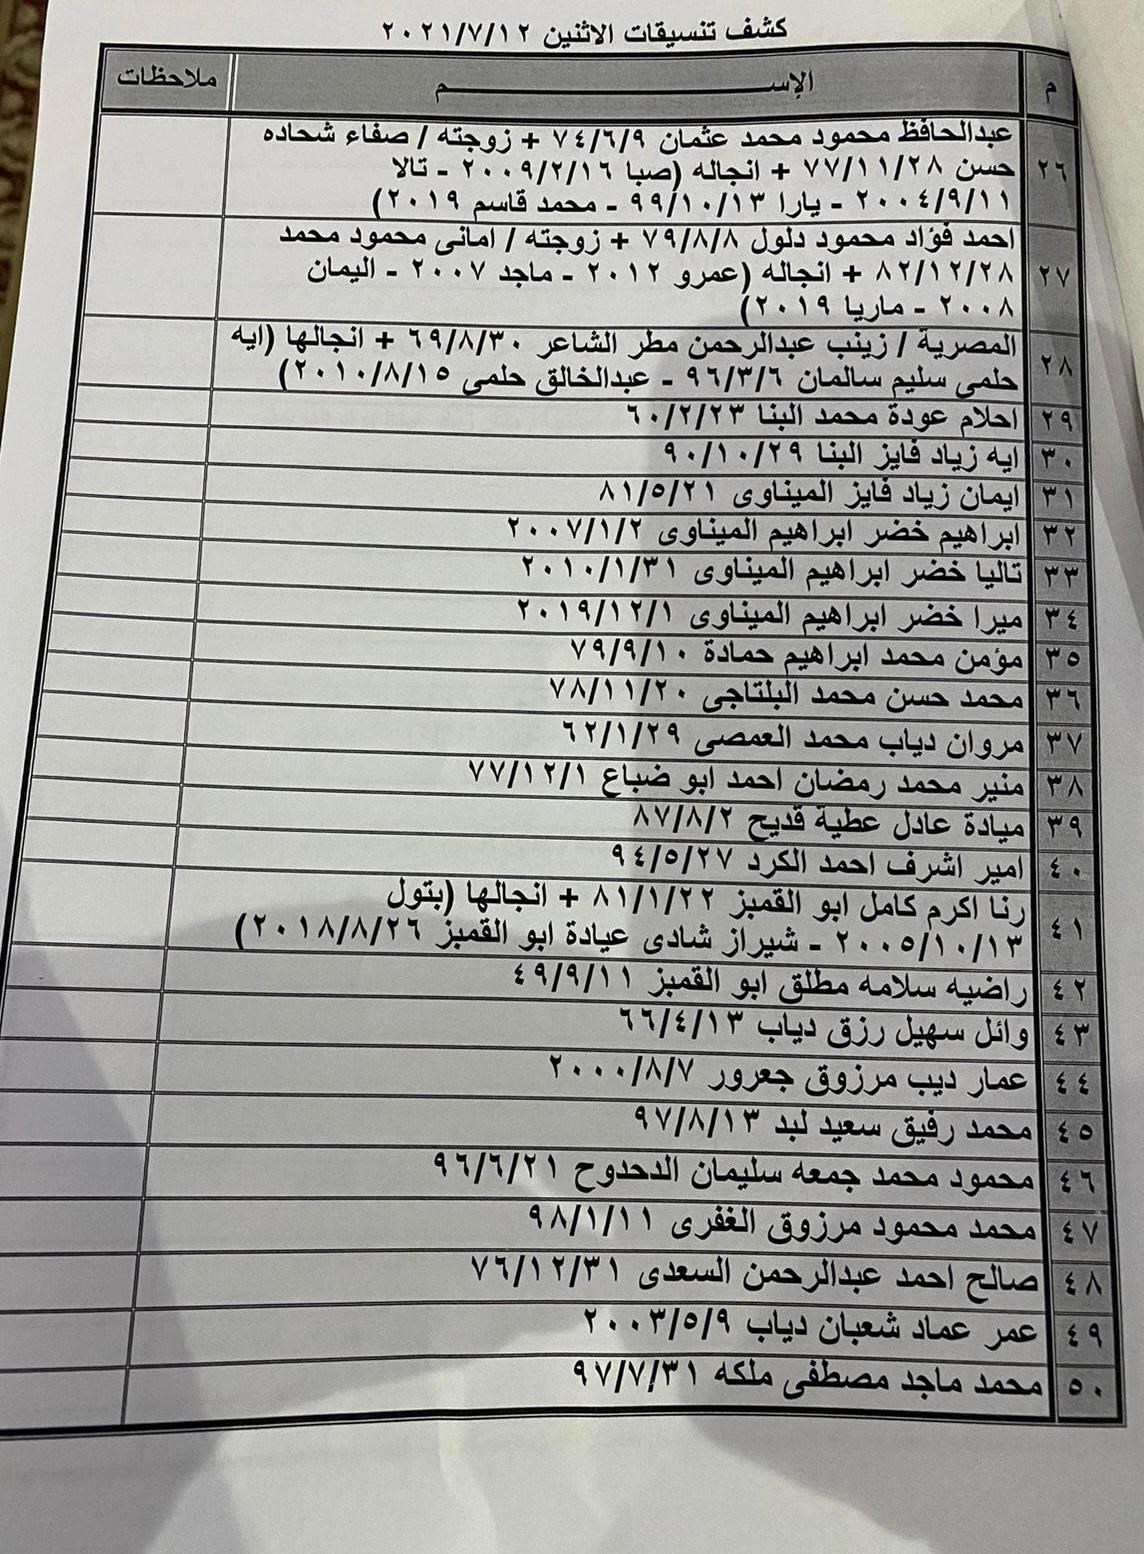 كشف تنسيقات الاثنين ٢٠٢١/٧/١٢
م الإســـــــــــم ملاحظات
٢٦ عبدالحافظ محمود محمد عثمان ٧٤/٦/٩ + زوجته / صفاء شحاده
حسن ٧٧/١١/٢٨ + انجاله (صبا ٢٠٠٩/٢/١٦ - تالا
٢٠٠٤/٩/١١ - يارا ٩٩/١٠/١٣ - محمد قاسم ٢٠١٩)
٢٧ احمد فؤاد محمود دلول ٧٩/٨/٨ + زوجته / امانى محمود محمد
٨٢/١٢/٢٨ + انجاله (عمرو ٢٠١٢ - ماجد ٢٠٠٧ - اليمان
٢٠٠٨ - ماريا ٢٠١٩)
٢٨ المصرية / زينب عبدالرحمن مطر الشاعر ٦٩/٨/٣٠ + انجالها (ايه
حلمى سليم سالمان ٩٦/٣/٦ - عبدالخالق حلمى ٢٠١٠/٨/١٥)
٢٩ احلام عودة محمد البنا ٦٠/٢/٢٣
٣٠ ايه زياد فايز البنا ٩٠/١٠/٢٩
٣١ ايمان زياد فايز الميناوى ٨١/٥/٢١
٣٢ ابراهيم خضر ابراهيم الميناوى ٢٠٠٧/١/٢
٣٣ تاليا خضر ابراهيم الميناوى ٢٠١٠/١/٣١
٣٤ ميرا خضر ابراهيم الميناوى ٢٠١٩/١٢/١
٣٥ مؤمن محمد ابراهيم حمادة ٧٩/٩/١٠
٣٦ محمد حسن محمد البلتاجى ٧٨/١١/٢٠
٣٧ مروان دياب محمد العمصى ٦٢/١/٢٩
٣٨ منير محمد رمضان احمد ابو ضباع ٧٧/١٢/١
٣٩ ميادة عادل عطية قديح ٨٧/٨/٢
٤٠ امير اشرف احمد الكرد ٩٤/٥/٢٧
٤١ رنا اكرم كامل ابو القمبز ٨١/١/٢٢ + انجالها (بتول
٢٠٠٥/١٠/١٣ - شيراز شادى عيادة ابو القمبز ٢٠١٨/٨/٢٦)
٤٢ راضيه سلامه مطلق ابو القمبز ٤٩/٩/١١
٤٣ وائل سهيل رزق دياب ٦٦/٤/١٣
٤٤ عمار ديب مرزوق جعرور ٢٠٠٠/٨/٧
٤٥ محمد رفيق سعيد لبد ٩٧/٨/١٣
٤٦ محمود محمد جمعه سليمان الدحدوح ٩٦/٦/٢١
٤٧ محمد محمود مرزوق الغفرى ٩٨/١/١١
٤٨ صالح احمد عبدالرحمن السعدى ٧٦/١٢/٣١
٤٩ عمر عماد شعبان دياب ٢٠٠٣/٥/٩
٥٠ محمد ماجد مصطفى ملكه ٩٧/٧/٣١